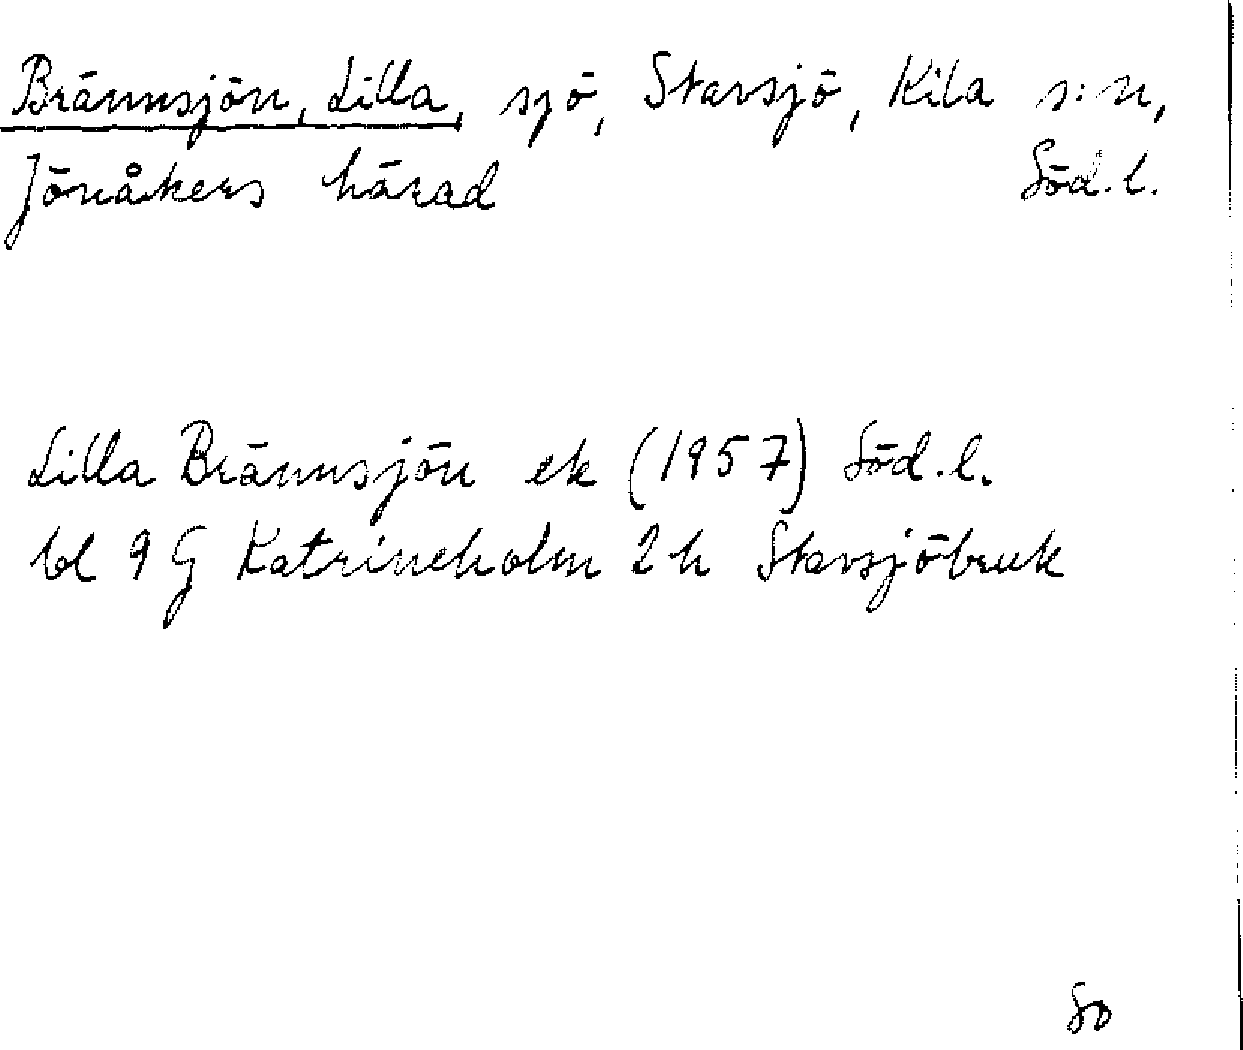 Brännsjön, Lilla, sjö, Stavsjö, Kila s:n,
Jönåkers härad Söd.l.
Lilla Brännsjön ek (1957) Söd.l.
bl 9 G Katrineholm 2 h Stavsjöbruk
So